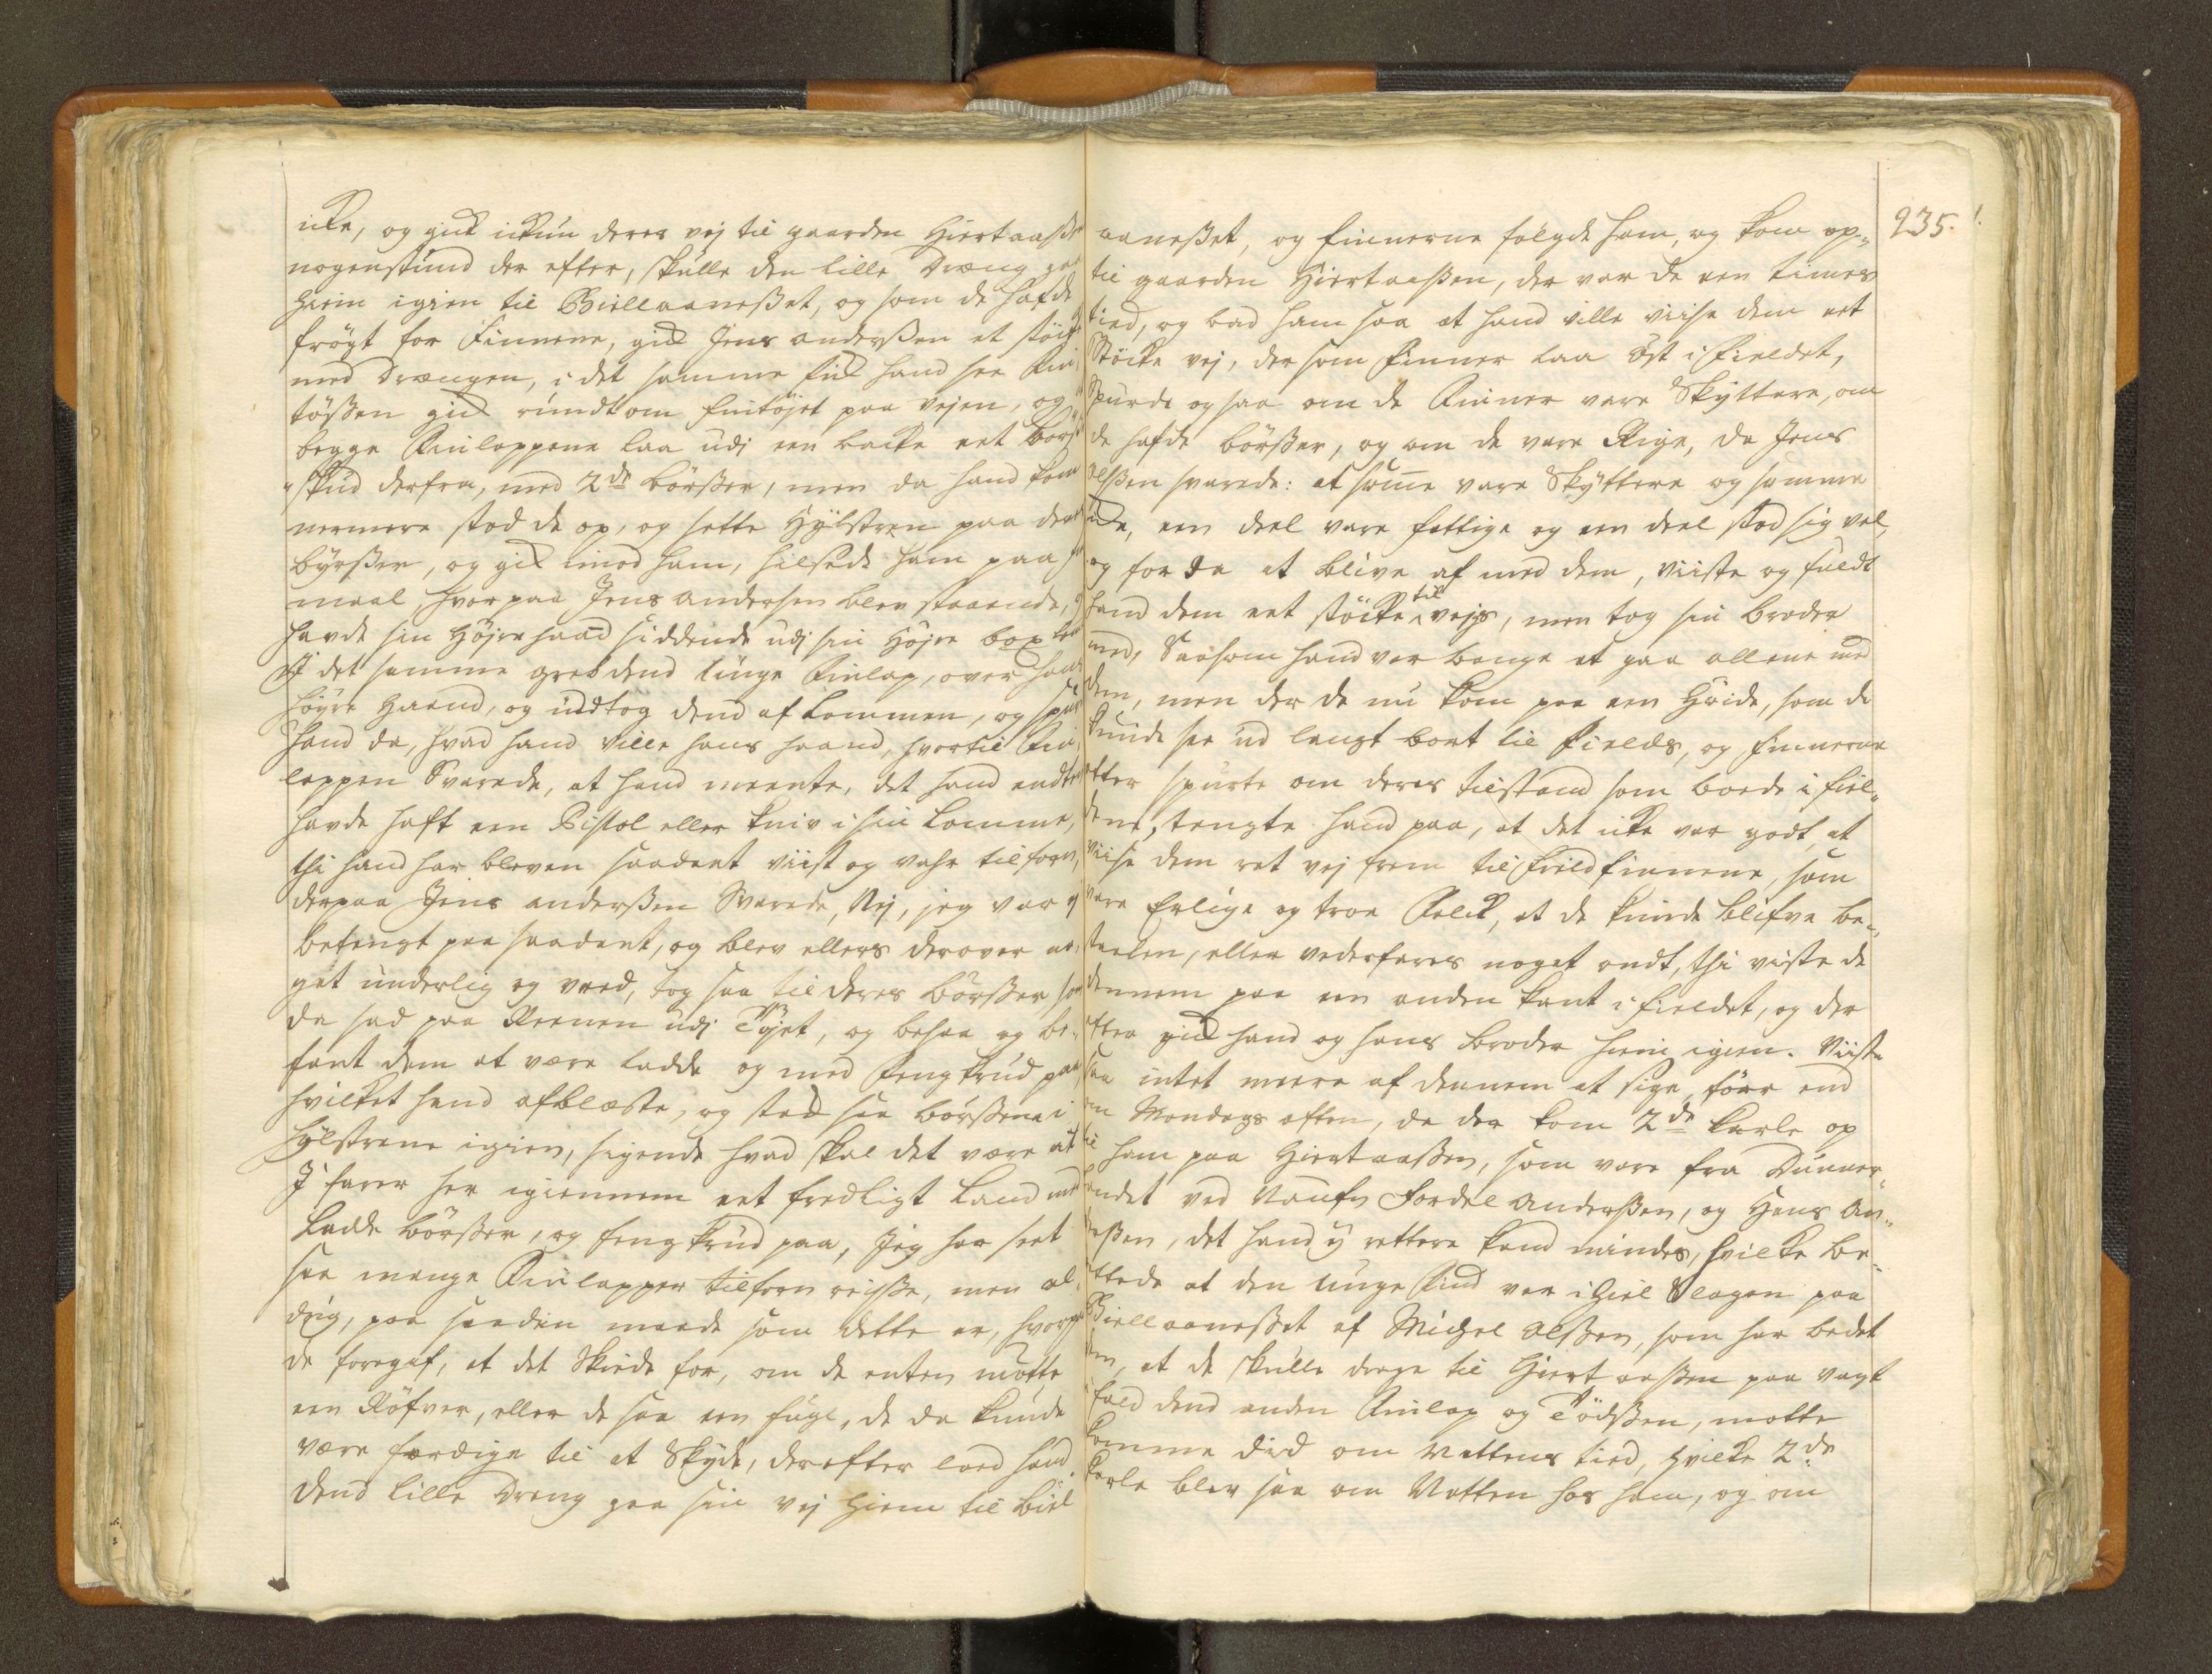 icke, og gick ickun deres vej til gaarden Hiertaaß
nogenstund der efter, skulle den lille Dreng gaa
hiem igien til Biellaaneßet, og som de hafde
frögt for Finnene, gick Jens anderßen et stöcke
med Drengen, i det samme fick hand see Fin
tößen gick rundt om finitöjet paa Vejen, og
begge Finlappene laa udj een backe eet börß
skud derfra, med 2de börßer, men da hand kom
nermere stod de op, og sette Hylstren paa deres
byrßer, og gick imod ham, hilsede ham paa
maal, hvorpaa Jens andersen blev staaende, og
havde sin Höjre haand siddende udj sin Höjre box
I det samme greb dend unge Finlap, over hans
höyre Haand, og udtog dend af Lommen, og spurde
hand da, hvad hand ville hans haand, hvortil Fin
lappen Svarede, at hand meente, det hand endten
havde haft een Pistol eller kniv i sin Lomme,
thi hand har bleven saadant viist og vahr tilforn,
derpaa Jens anderßen Svarede, Nej, jeg var ej
betengt paa saadant, og blev ellers derover
get underlig og vred, tog saa til deres börßer, som
da sad paa Reenen udj Töjet, og besaa og be
fant dem at være ladde og med Fengkrud paa,
hvilket hand afblæste, og stack saa börßene i
hylstrene igien, sigende hvad skal det være at
I farer her igiennem eet fredligt Land med
Ladde börßer, og fengkrud paa, Jeg har seet
saa mange Finlapper tilforn reiße, men al
drig, paa saadan maade som dette er, hvorpaa
de foregaf, at det Skiede for, om de enten mötte
een Röfver, eller de saa een fugl, de da kunde
være færdige til at Skyde, derefter lod hand
dend lille Dreng gaa sin vej hiem til Biel
235.
aaneßet, og Finnerne fölgde ham, og kom op
til gaarden Hiertaaßen, der var de een times
tied, og bad ham saa at hand ville viise dem eet
Stöcke vej, der som Finner laa öst i Fieldet,
Spurde ogsaa om de Finner vare Skyttere, om
de hafde börßer, og om de vare Rige, da Jens
olßen svarede: at somme vare Skyttere og somme
icke, een deel vare fattige og een deel stod sig vel,
og for da at blive af med dem, Viiste og fuldt
hand dem eet stöcke til vejs, men tog sin broder
med, Saasom hand var bange at gaa allene med
dem, men der de nu kom paa een Höide, som de
kunde see ud langt bort til Fields, og Finnerne
etter spurte om deres tilstand som boede i fiel
dene, tengte hand paa, at det icke var godt, at
viise dem ret vej frem til Fieldfinnene, som
vare Erlige og troe Folck, at de kunde blifve be
staalen, eller vederfares noget ondt, thi viste de
dennem paa een anden kant i fieldet, og der
efter gick hand og hans broder hiem igien. Viiste
saa intet meere af dennem at sige, förr end
om Mondags aften, da der kom 2de karle op
til ham paa Hiertaaßen, som vare fra Dunner
landet ved Naufn Fordel Anderßen, og Hans An
derßen, det hand ej rettere kand mindes, hvilke be
rettede at den unge Find var ihiel Slagen paa
Biellaaneßet af Michel Olßen, som har bedet
dem, at de skulle drage til Hiertaaßen paa vagt
ifald dend anden Finlap og Tödßen, motte
komme did om Nattens tied, hvilke 2de
karle blev saa om Natten hos ham, og om